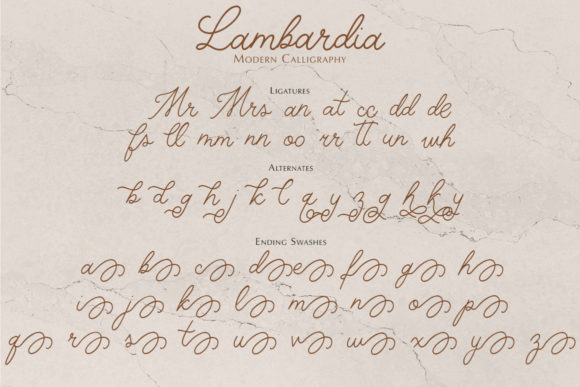 Lambardia
Modern Calligraphy
Ligatures
Mr Mrs an at cc dd de
fs ll mm nn oo rr tt un wh
Alternates
b d g h j k l q y z g h k y
Ending Swashes
a b c d e f g h
i j k l m n o p
q r s t u v w x y z